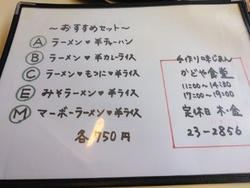 ～おすすめセット～
Ⓐ ラーメン♥半チャーハン
Ⓑ ラーメン♥半カレーライス
Ⓒ ラーメン♥もつに♥半ライス
Ⓔ みそラーメン♥半ライス
Ⓜ マーボーラーメン♥半ライス
各750円
手作りの味じまん
かどや食堂
11:00～14:30
17:00～19:00
定休日 木・金
23-2856